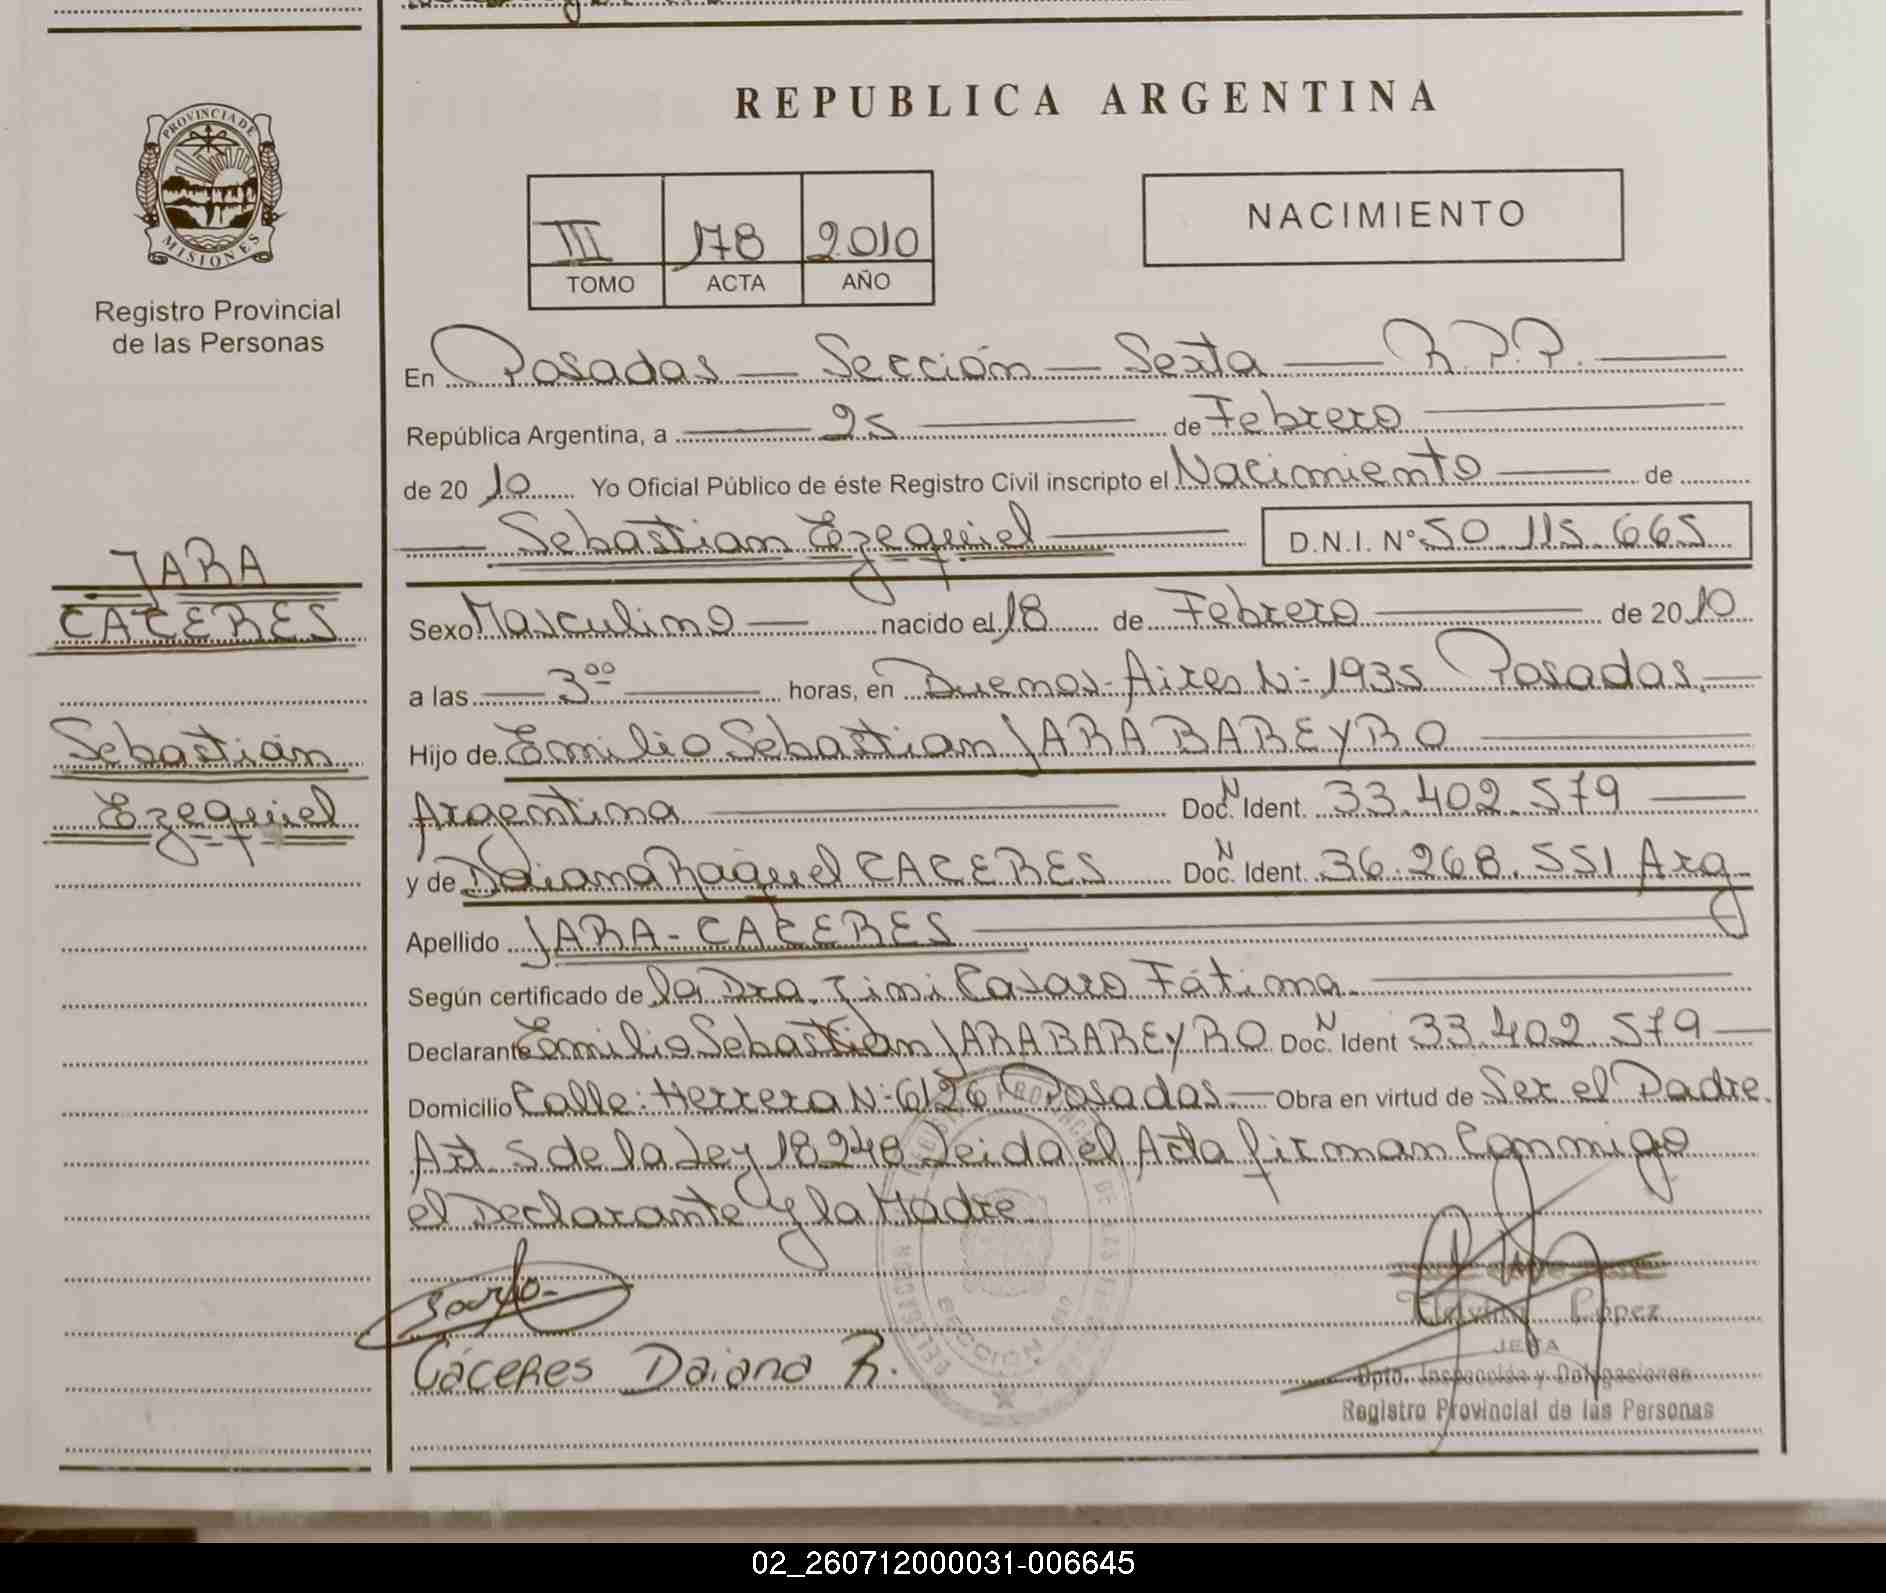 REPUBLICA ARGENTINA
PROVINCIA DE
MISIONES
Registro Provincial
de las Personas
III 178 2010
TOMO ACTA AÑO
NACIMIENTO
En Posadas — Sección — Sexta — R.P.P.
República Argentina, a — 25 — de Febrero
de 20 10 Yo Oficial Público de éste Registro Civil inscripto el Nacimiento — de
Sebastian Ezequiel — D.N.I. Nº 50.115.665
JARA
CACERES
Sebastián
Ezequiel
Sexo Masculino — nacido el 18 de Febrero — de 2010
a las — 3 00 — horas, en Buenos-Aires N: 1935 Posadas.
Hijo de Emilio Sebastian JARA BAREYRO
Argentina — Doc. N Ident. 33.402.579
y de Daiana Raquel CACERES Doc. N Ident. 36.268.551 Arg
Apellido JARA - CACERES
Según certificado de la Dra. Fátima.
Declarante Emilio Sebastián JARA BAREYRO Doc. N Ident 33.402.579
Domicilio Calle: Herrera N: 6126 Posadas. — Obra en virtud de Ser el Padre.
Art 5 de la Ley 18248 Leida el Acta firman Conmigo
el Declarante y la Madre.
Cáceres Daiana R.
SECCION
López
JEFA
Dpto. Inspección y Delegaciones
Registro Provincial de las Personas
02_260712000031-006645